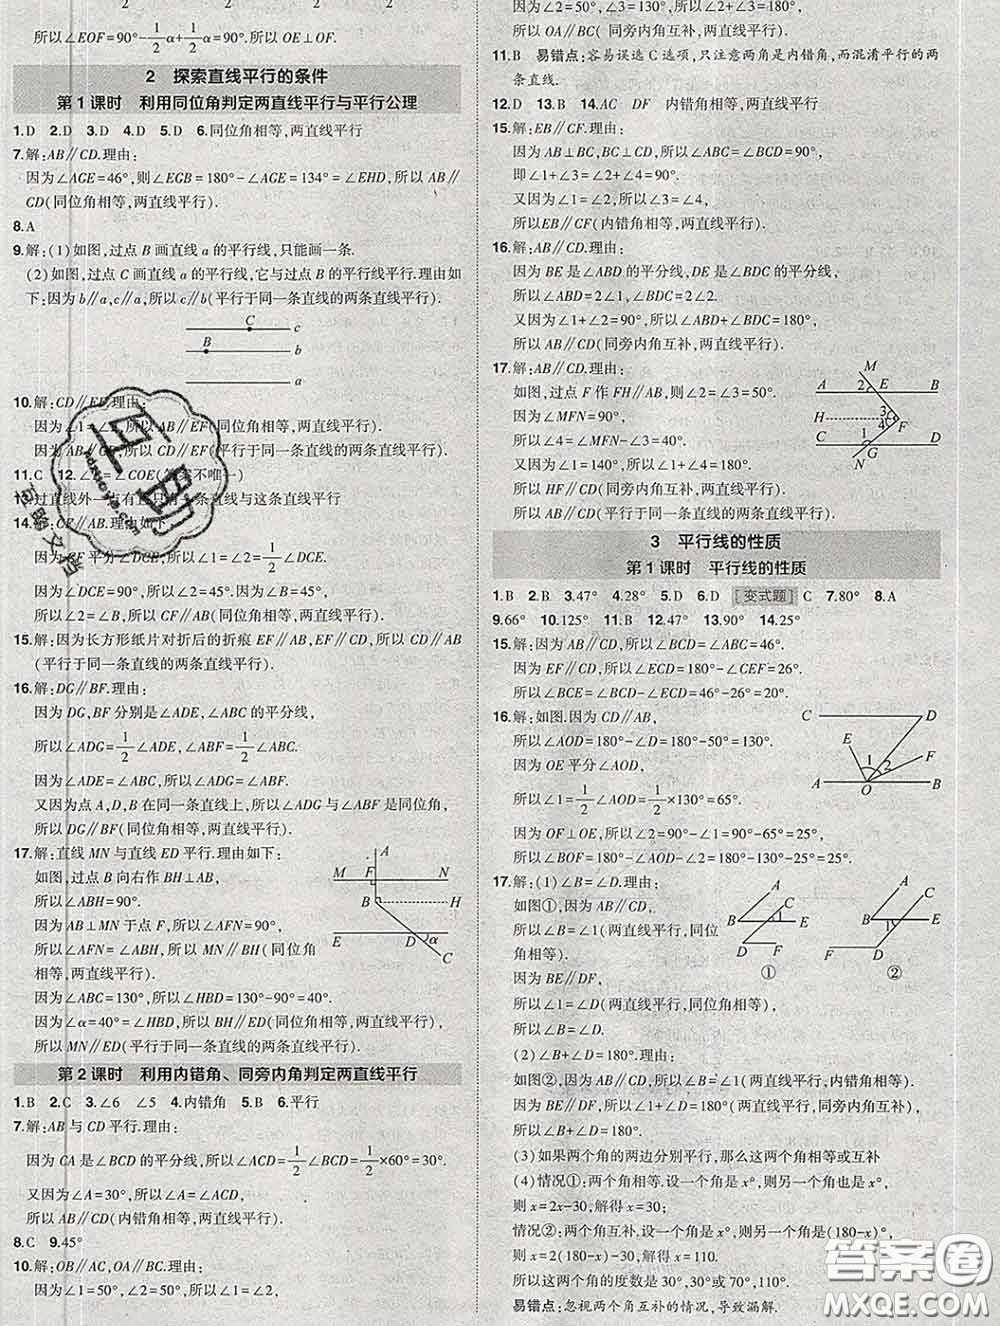 所以∠EOF=90°-1/2α+1/2α=90°.所以OE⊥OF.
2 探索直线平行的条件
第1课时 利用同位角判定两直线平行与平行公理
1.D 2.D 3.D 4.D 5.D 6.同位角相等,两直线平行
7.解:AB∥CD.理由:
因为∠AGE=46°,则∠EGB=180°-∠AGE=134°=∠EHD,所以AB∥
CD(同位角相等,两直线平行).
8.A
9.解:(1)如图,过点B画直线a的平行线,只能画一条.
(2)如图,过点C画直线a的平行线,它与过点B的平行线平行.理由如
下:因为b∥a,c∥a,所以c∥b(平行于同一条直线的两条直线平行).
C c
B b
a
10.解:CD∥EF.理由:
因为∠1=∠2,所以AB∥EF(同位角相等,两直线平行).
因为AB∥CD,所以CD∥EF(平行于同一条直线的两条直线平行).
11.C 12.∠ =∠COE(答案不唯一)
过直线外一点有且只有一条直线与这条直线平行
14.解:CF∥AB.理由如下:
因为CF平分∠DCE,所以∠1=∠2=1/2∠DCE.
因为∠DCE=90°,所以∠1=45°.
因为∠3=45°,所以∠1=∠3.
所以∠2=45°,所以CF∥AB(同位角相等,两直线平行).
15.解:因为长方形纸片对折后的折痕EF∥AB,EF∥CD,所以CD∥AB
(平行于同一条直线的两条直线平行).
16.解:DG∥BF.理由:
因为DG,BF分别是∠ADE,∠ABC的平分线,
所以∠ADG=1/2∠ADE,∠ABF=1/2∠ABC.
因为∠ADE=∠ABC,所以∠ADG=∠ABF.
又因为点A,D,B在同一条直线上,所以∠ADG与∠ABF是同位角,
所以DG∥BF(同位角相等,两直线平行).
17.解:直线MN与直线ED平行.理由如下:
如图,过点B向右作BH⊥AB,
所以∠ABH=90°.
因为AB⊥MN于点F,所以∠AFN=90°,
所以∠AFN=∠ABH,所以MN∥BH(同位角
相等,两直线平行).
A
M F N
B H
E D α
C
因为∠ABC=130°,所以∠HBD=130°-90°=40°.
因为∠α=40°=∠HBD,所以BH∥ED(同位角相等,两直线平行),
所以MN∥ED(平行于同一条直线的两条直线平行).
第2课时 利用内错角、同旁内角判定两直线平行
1.B 2.C 3.∠6 ∠5 4.内错角 5.B 6.平行
7.解:AB与CD平行.理由:
因为CA是∠BCD的平分线,所以∠ACD=1/2∠BCD=1/2×60°=30°.
又因为∠A=30°,所以∠A=∠ACD,
所以AB∥CD(内错角相等,两直线平行).
8.C 9.45°
10.解:OB∥AC,OA∥BC.理由:
因为∠1=50°,∠2=50°,所以∠1=∠2,
因为∠2=50°,∠C=130°,所以∠2+∠C=180°,
所以OA∥BC(同旁内角互补,两直线平行).
11.B 易错点:容易误选C选项,只注意两角是内错角,而混淆平行的两
条直线.
12.D 13.B 14.AC DF 内错角相等,两直线平行
15.解:EB∥CF.理由:
因为AB⊥BC,BC⊥CD,所以∠ABC=∠BCD=90°,
即∠1+∠3=∠2+∠4=90°.
又因为∠1=∠2,所以∠3=∠4,
所以EB∥CF(内错角相等,两直线平行).
16.解:AB∥CD.理由:
因为BE是∠ABD的平分线,DE是∠BDC的平分线,
所以∠ABD=2∠1,∠BDC=2∠2.
因为∠1+∠2=90°,所以∠ABD+∠BDC=180°,
所以AB∥CD(同旁内角互补,两直线平行).
17.解:AB∥CD.理由:
如图,过点F作FH∥AB,则∠2=∠3=50°.
因为∠MFN=90°,
所以∠4=∠MFN-∠3=40°.
又因为∠1=140°,所以∠1+∠4=180°,
所以HF∥CD(同旁内角互补,两直线平行),
所以AB∥CD(平行于同一条直线的两条直线平行).
M
A 2 E B
H 3 4 F
C 1 G D
N
3 平行线的性质
第1课时 平行线的性质
1.B 2.B 3.47° 4.28° 5.D 6.D [变式题] C 7.80° 8.A
9.66° 10.125° 11.B 12.47° 13.90° 14.25°
15.解:因为AB∥CD,所以∠BCD=∠ABC=46°.
因为EF∥CD,所以∠ECD=180°-∠CEF=26°.
所以∠BCE=∠BCD-∠ECD=46°-26°=20°.
16.解:如图.因为CD∥AB,
所以∠AOD=180°-∠D=180°-50°=130°.
因为OE平分∠AOD,
所以∠1=1/2∠AOD=1/2×130°=65°.
因为OF⊥OE,所以∠2=90°-∠1=90°-65°=25°.
所以∠BOF=180°-∠AOD-∠2=180°-130°-25°=25°.
C D
E F
1 2
A O B
17.解:(1)∠B=∠D.理由:
如图①,因为AB∥CD,
所以∠B=∠1(两直线平行,同位
角相等).
因为BE∥DF,
所以∠1=∠D(两直线平行,同位角相等),
所以∠B=∠D.
A C
B 1 E
D F
①
A C
B E
F D
②
(2)∠B+∠D=180°.理由:
如图②,因为AB∥CD,所以∠B=∠2(两直线平行,内错角相等).
因为BE∥DF,所以∠2+∠D=180°(两直线平行,同旁内角互补).
所以∠B+∠D=180°.
(3)如果两个角的两边分别平行,那么这两个角相等或互补
(4)情况①:两个角相等,设一个角是x°,则另一个角是x°,
则x=2x-30,解得x=30;
情况②:两个角互补,设一个角是x°,则另一个角是(180-x)°,
则x=2(180-x)-30,解得x=110.
所以这两个角的度数是30°,30°或70°,110°.
易错点:忽视两个角互补的情况,导致漏解.
答案圈
MXQE.COM